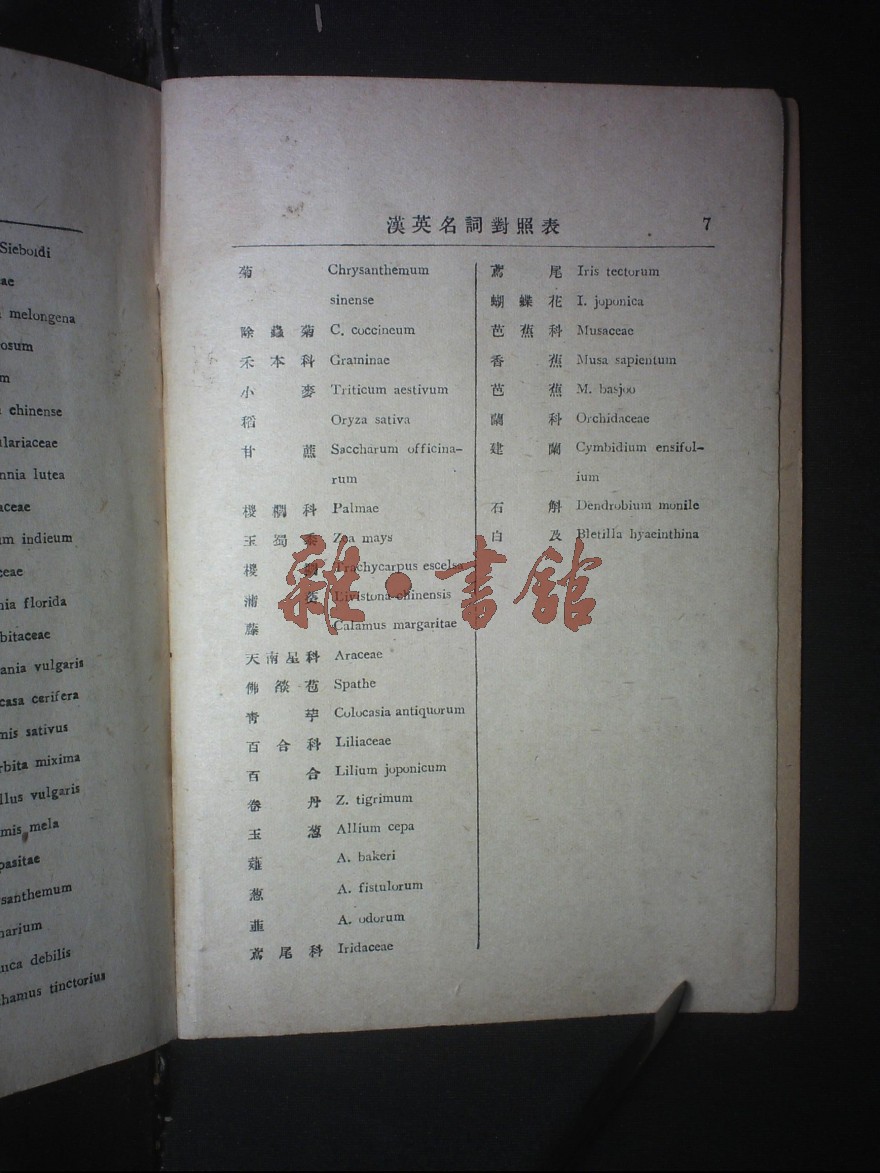 Sieboidi
ae
melongena
osum
m
chinense
ulariaceae
nnia lutea
aceae
um indieum
ceae
nia florida
bitaceae
ania vulgaris
casa cerifera
mis sativus
rbita mixima
llus vulgaris
mis mela
pasitae
santhemum
narium
nca debilis
thamus tinctorius
漢英名詞對照表 7
菊 Chrysanthemum
sinense
除蟲菊 C. coccineum
禾本科 Graminae
小麥 Triticum aestivum
稻 Oryza sativa
甘蔗 Saccharum officina-
rum
椶櫚科 Palmae
玉蜀黍 Zea mays
椶櫚 Trachycarpus escelsa
蒲葵 Livistona chinensis
藤 Calamus margaritae
天南星科 Araceae
佛燄苞 Spathe
青芋 Colocasia antiquorum
百合科 Liliaceae
百合 Lilium joponicum
卷丹 Z. tigrimum
玉葱 Allium cepa
薤 A. bakeri
葱 A. fistulorum
韮 A. odorum
鳶尾科 Iridaceae
鳶尾 Iris tectorum
蝴蝶花 I. joponica
芭蕉科 Musaceae
香蕉 Musa sapientum
芭蕉 M. basjoo
蘭科 Orchidaceae
建蘭 Cymbidium ensifol-
ium
石斛 Dendrobium monile
白及 Bletilla hyacinthina
雜·書館